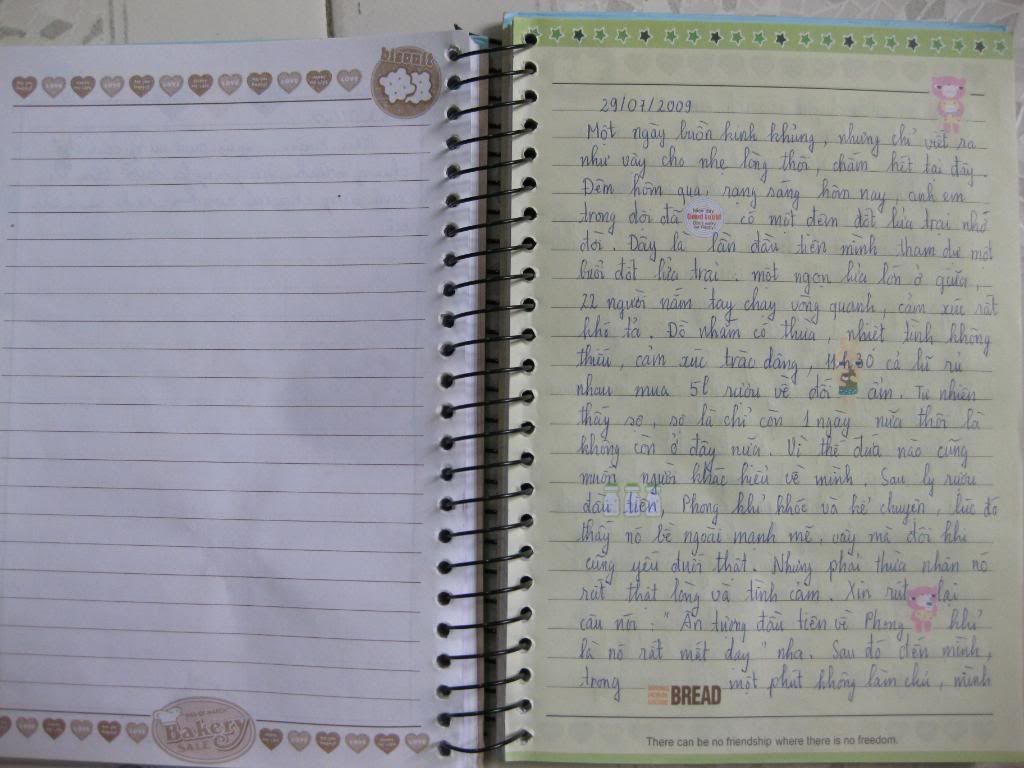 biscuit
29/07/2009
Một ngày buồn kinh khủng, nhưng chỉ viết ra
như vậy cho nhẹ lòng thôi, chấm hết tại đây.
Đêm hôm qua, rạng sáng hôm nay, anh em
trong đội đã có một đêm đốt lửa trại nhớ
đời. Đây là lần đầu tiên mình tham dự một
buổi đốt lửa trại. một ngọn lửa lớn ở giữa,
22 người nắm tay chạy vòng quanh, cảm xúc rất
khó tả. Đồ nhắm có thừa, nhiệt tình không
thiếu, cảm xúc trào dâng, 11h30 cả lũ rủ
nhau mua 5l rượu về đối ẩm. Tự nhiên
thấy sợ, sợ là chỉ còn 1 ngày nữa thôi là
không còn ở đây nữa. Vì thế đứa nào cũng
muốn người khác hiểu về mình. Sau ly rượu
đầu tiên, Phong khỉ khóc và kể chuyện, lúc đó
thấy nó bề ngoài mạnh mẽ, vậy mà đôi khi
cũng yếu đuối thật. Nhưng phải thừa nhận nó
rất thật lòng và tình cảm. Xin rút lại
câu nói: "Ấn tượng đầu tiên về Phong khỉ
là nó rất mất dạy" nha. Sau đó đến mình,
trong một phút không làm chủ, mình
BREAD
There can be no friendship where there is no freedom.
Bakery
SALE